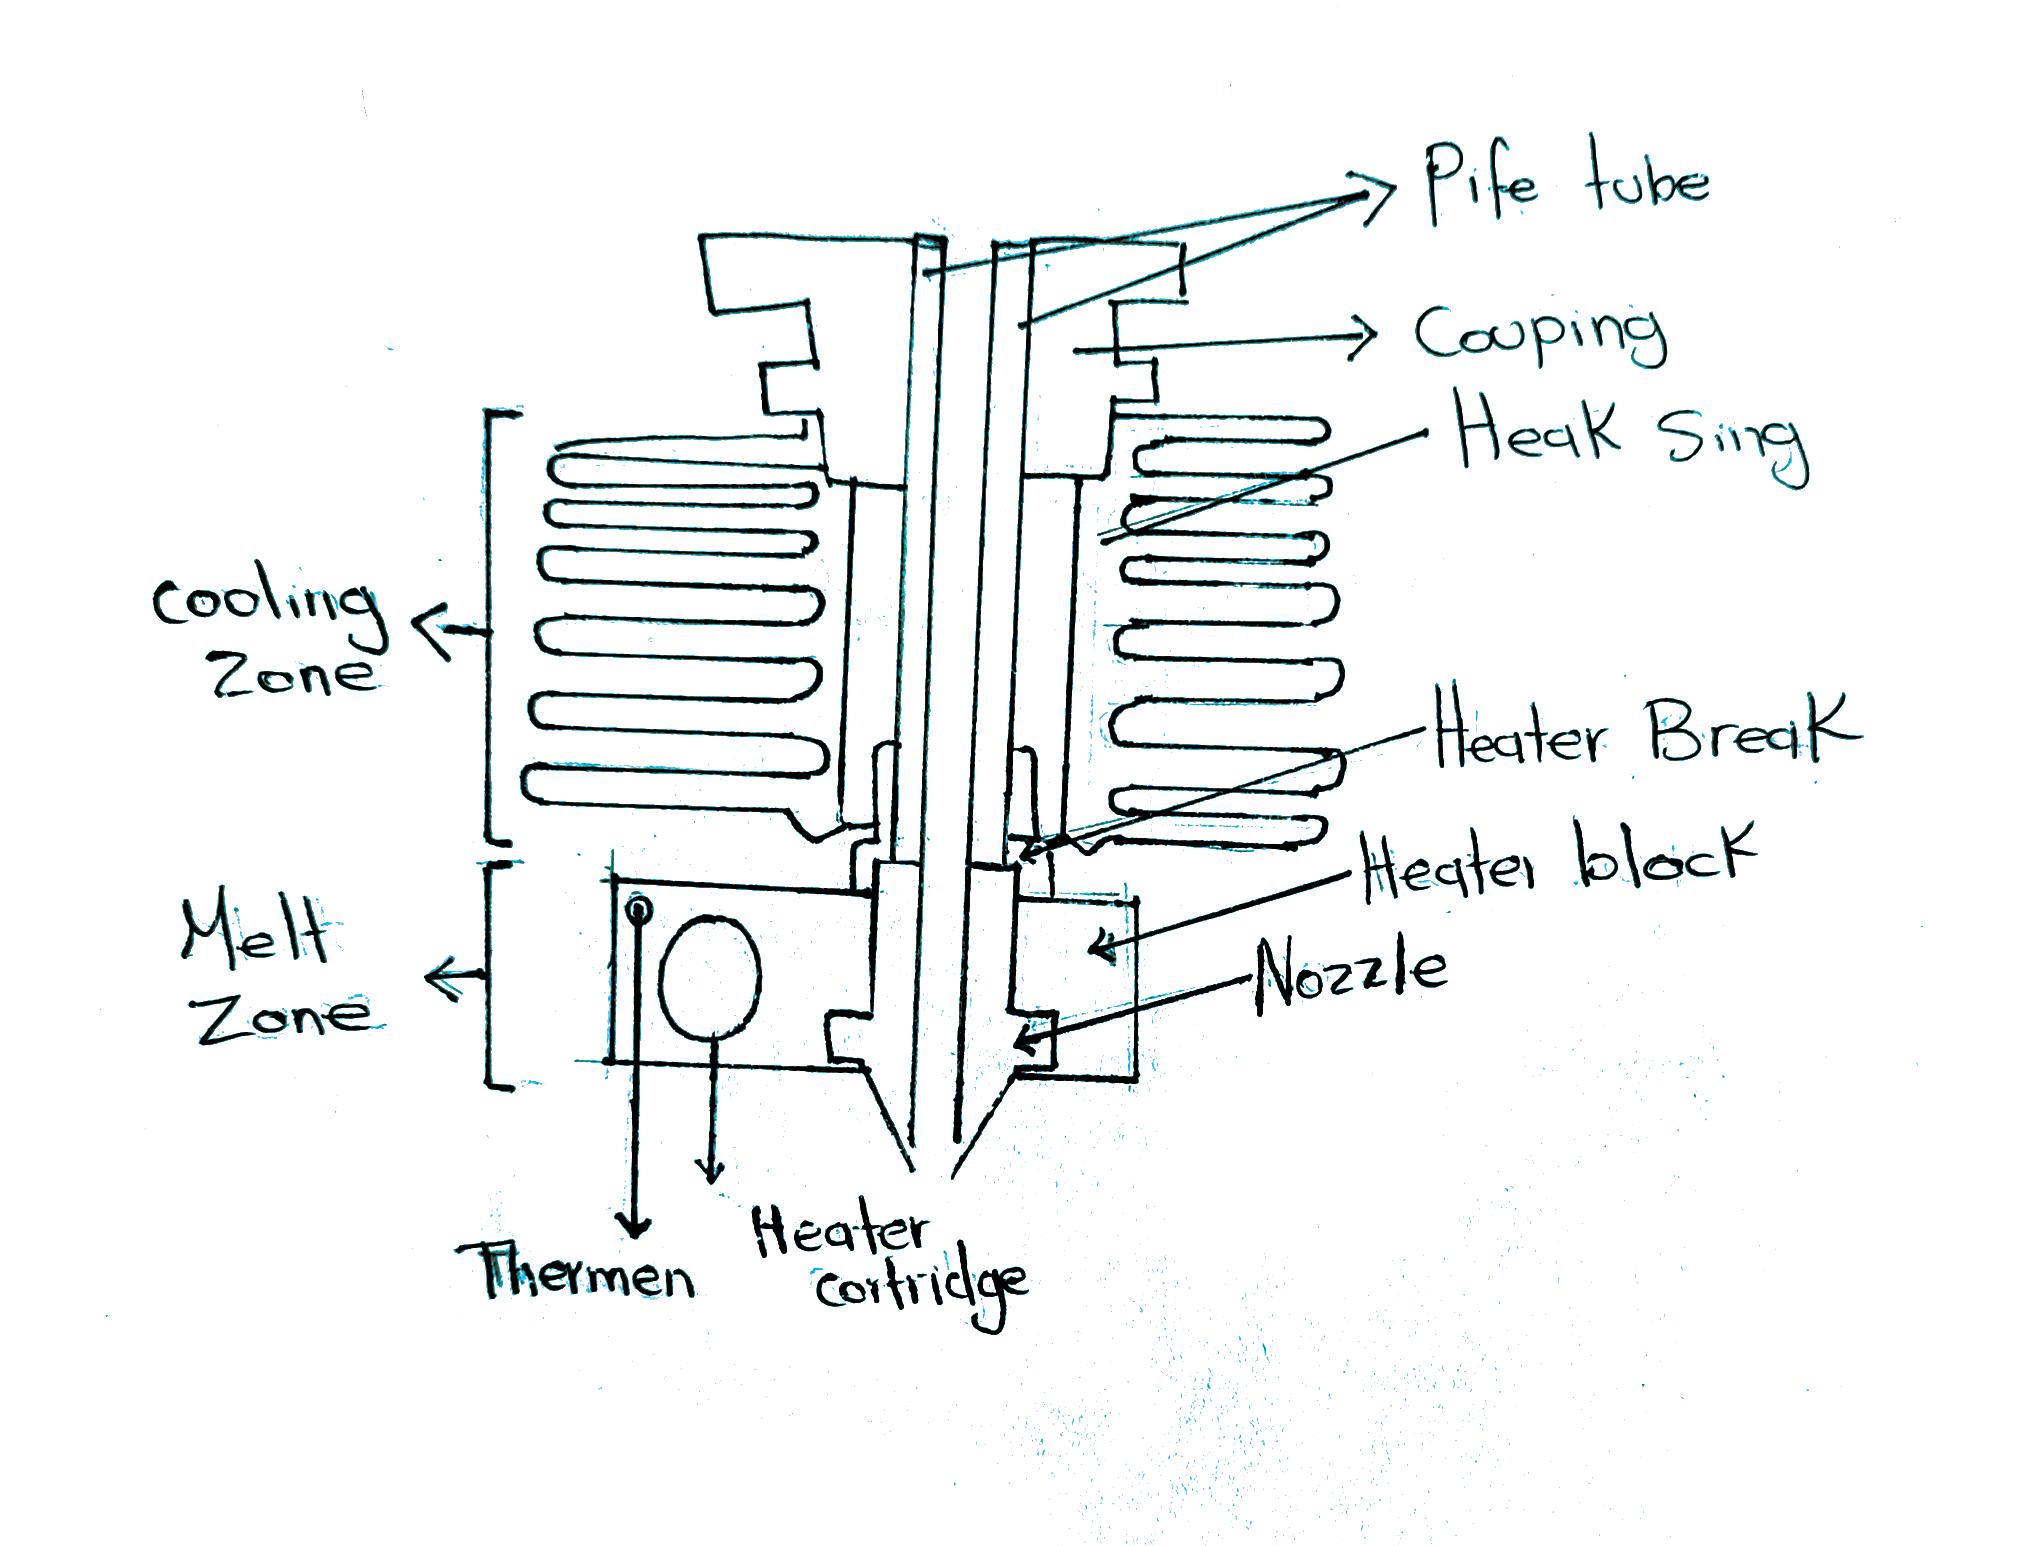 Pife tube
Couping
Heak Sing
cooling
Zone
Heater Break
Heater block
Melt
Zone
Nozzle
Thermen
Heater
cartridge